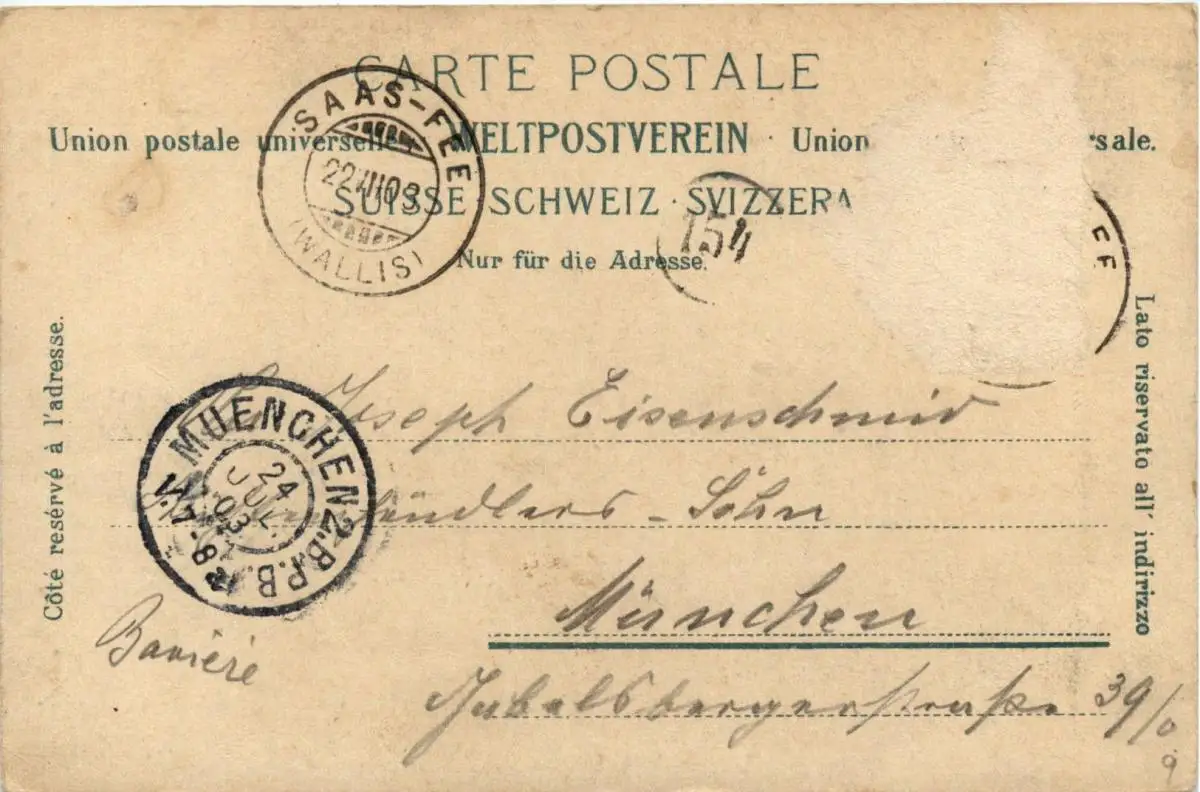 CARTE POSTALE
Union postale universelle · WELTPOSTVEREIN · Union sale.
SUISSE · SCHWEIZ · SVIZZERA
Nur für die Adresse.
SAAS-FEE
22.VII.03
(WALLIS)
154
EE
Côté resérvé à l'adresse.
Lato riservato all' indirizzo
Joseph Eisenschmid
händlers - Sohn
München
Bavière
Gabelsbergerstraße 39/0
9
MUENCHEN 2.B.P.B.
24
JUL
03
V. 7-8